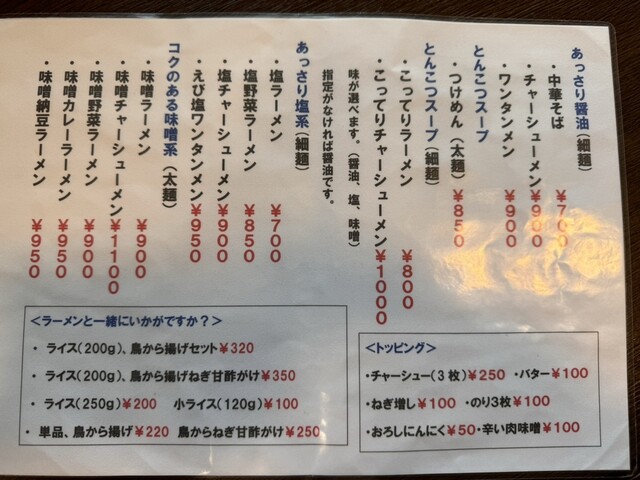 あっさり醤油(細麺)
・中華そば ¥700
・チャーシューメン ¥900
・ワンタンメン ¥900
とんこつスープ
・つけめん(太麺) ¥850
とんこつスープ(細麺)
・こってりラーメン ¥800
・こってりチャーシューメン ¥1000
味が選べます。(醤油、塩、味噌)
指定がなければ醤油です。
あっさり塩系(細麺)
・塩ラーメン ¥700
・塩野菜ラーメン ¥850
・塩チャーシューメン ¥900
・えび塩ワンタンメン ¥950
コクのある味噌系(太麺)
・味噌ラーメン ¥900
・味噌チャーシューメン ¥1100
・味噌野菜ラーメン ¥900
・味噌カレーラーメン ¥950
・味噌納豆ラーメン ¥950
<ラーメンと一緒にいかがですか?>
・ライス(200g)、鳥から揚げセット¥320
・ライス(200g)、鳥から揚げねぎ甘酢がけ¥350
・ライス(250g)¥200 小ライス(120g)¥100
・単品、鳥から揚げ¥220 鳥からねぎ甘酢がけ¥250
<トッピング>
・チャーシュー(3枚)¥250 ・バター¥100
・ねぎ増し¥100 ・のり3枚¥100
・おろしにんにく¥50・辛い肉味噌¥100